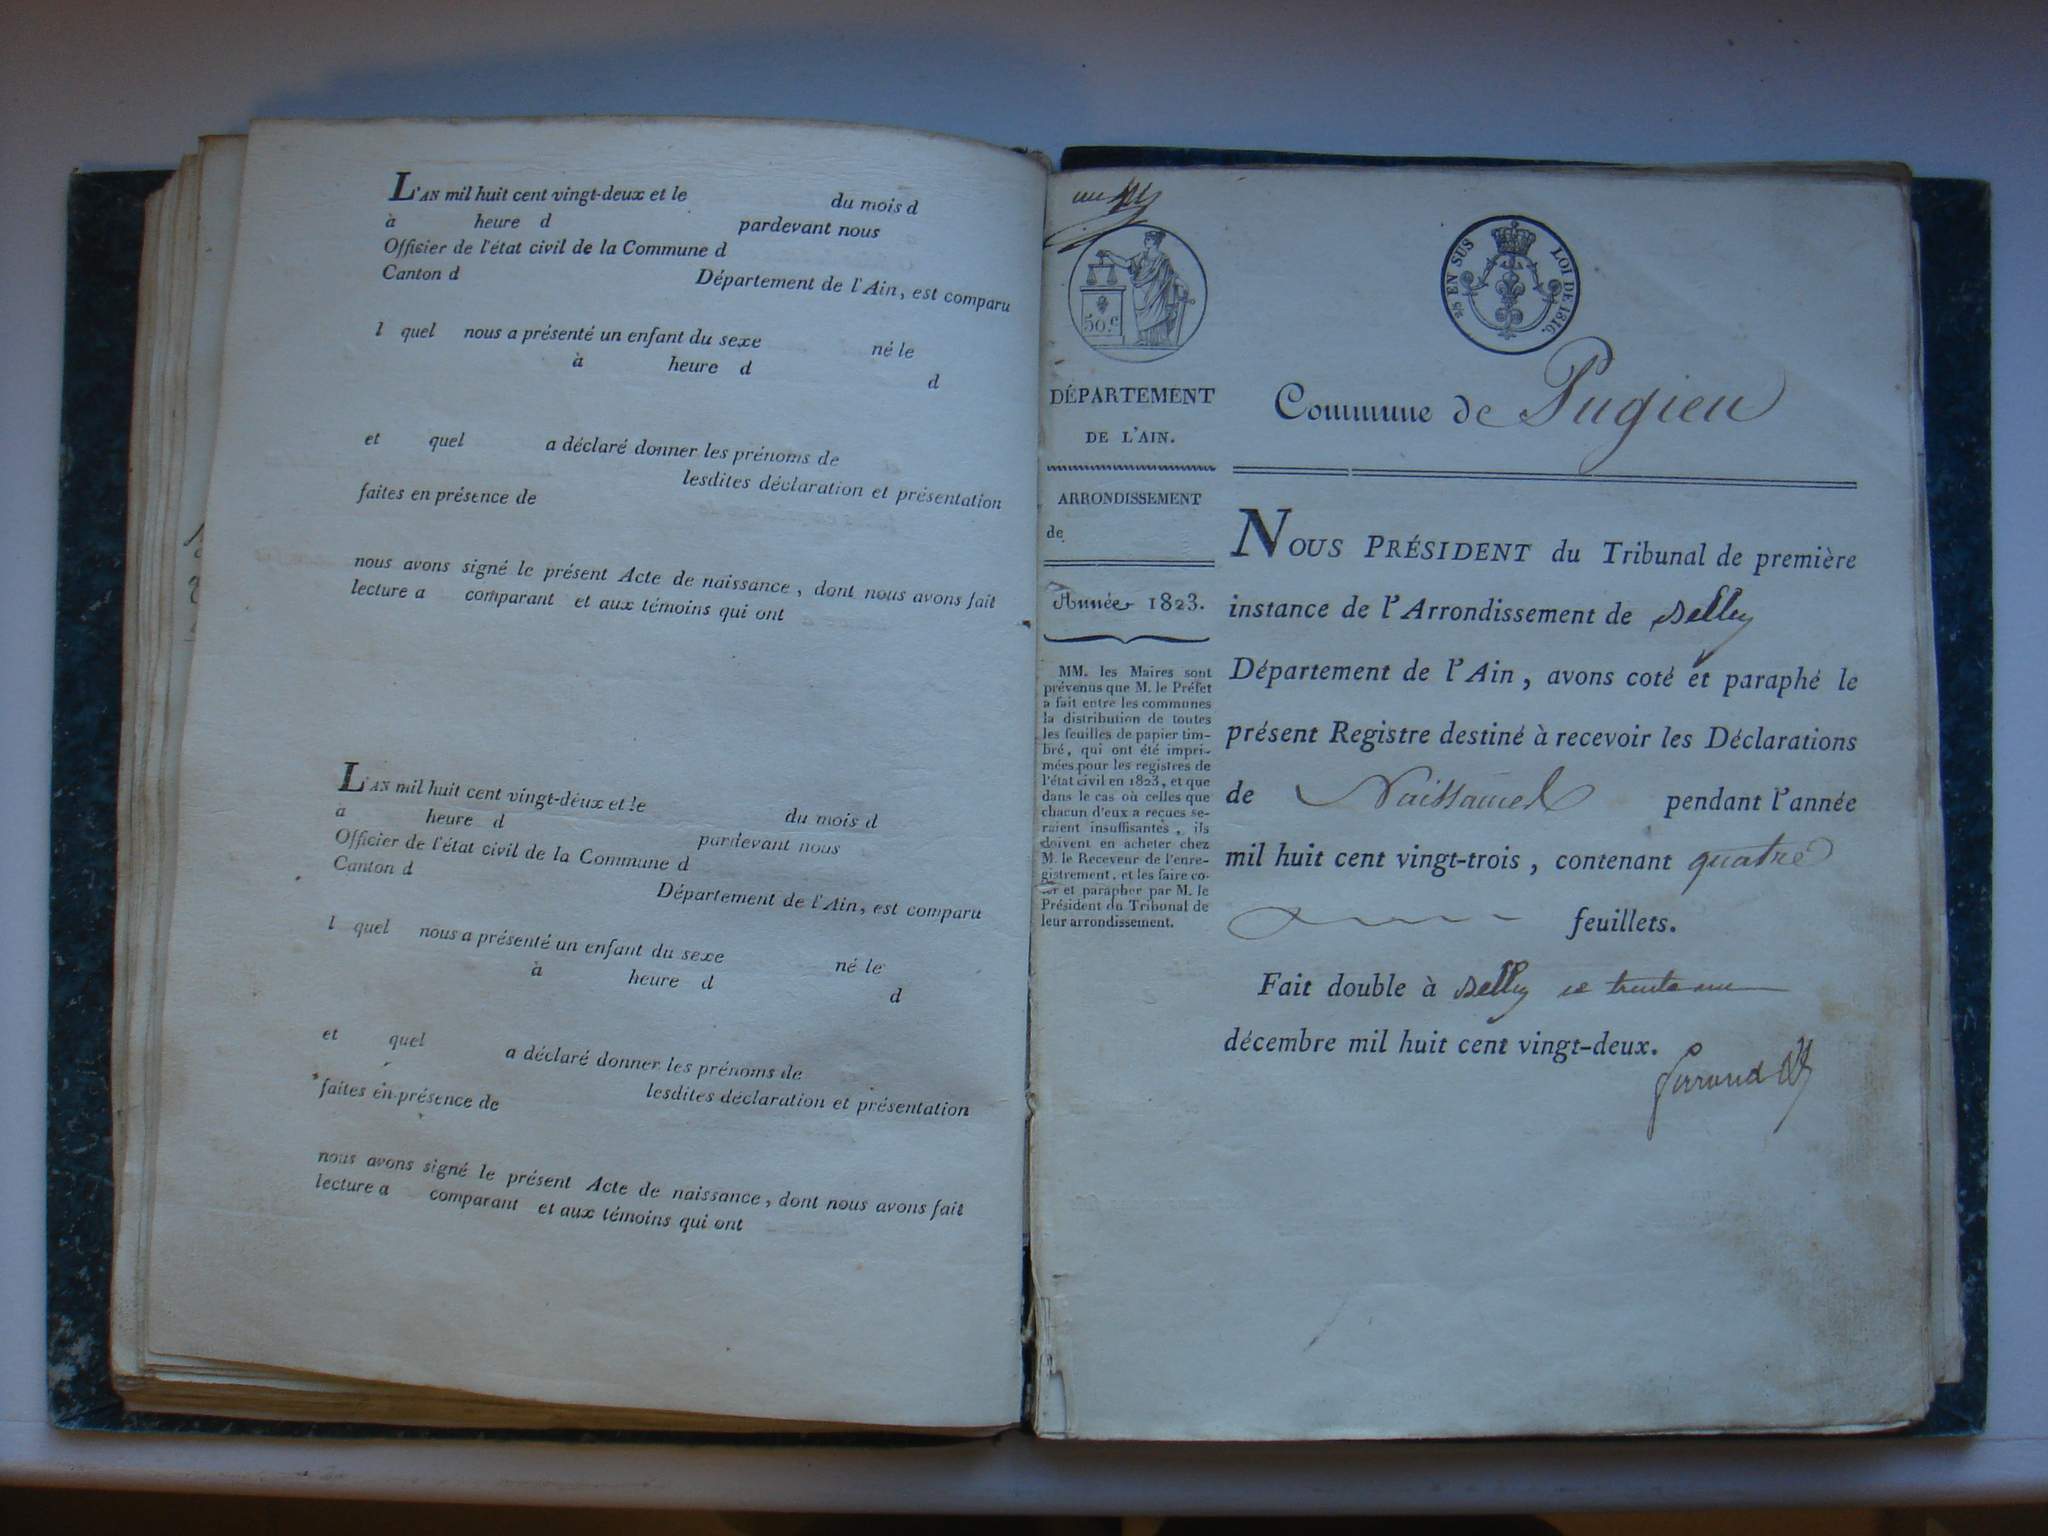 L'AN mil huit cent vingt-deux et le du mois d
à heure d pardevant nous
Officier de l'état civil de la Commune d
Canton d Département de l'Ain, est comparu
l quel nous a présenté un enfant du sexe né le
à heure d d
et quel a déclaré donner les prénoms de
lesdites déclaration et présentation
faites en présence de
nous avons signé le présent Acte de naissance, dont nous avons fait
lecture a comparant et aux témoins qui ont
L'AN mil huit cent vingt-deux et le du mois d
à heure d pardevant nous
Officier de l'état civil de la Commune d
Canton d Département de l'Ain, est comparu
l quel nous a présenté un enfant du sexe né le
à heure d d
et quel a déclaré donner les prénoms de
lesdites déclaration et présentation
faites en présence de
nous avons signé le présent Acte de naissance, dont nous avons fait
lecture a comparant et aux témoins qui ont
50.c
EN SUS LOI DE 1816.
DÉPARTEMENT
DE L'AIN.
ARRONDISSEMENT
de
Année 1823.
MM. les Maires sont
prévenus que M. le Préfet
a fait entre les communes
la distribution de toutes
les feuilles de papier tim-
bré, qui ont été impri-
mées pour les registres de
l'état civil en 1823, et que
dans le cas où celles que
chacun d'eux a reçues se-
raient insuffisantes, ils
doivent en acheter chez
M. le Receveur de l'enre-
gistrement, et les faire co-
ter et parapher par M. le
Président du Tribunal de
leur arrondissement.
Commune de Pugieu
NOUS PRÉSIDENT du Tribunal de première
instance de l'Arrondissement de Belley
Département de l'Ain, avons coté et paraphé le
présent Registre destiné à recevoir les Déclarations
de Naissances pendant l'année
mil huit cent vingt-trois, contenant quatre
feuillets.
Fait double à Belley le trente un
décembre mil huit cent vingt-deux.